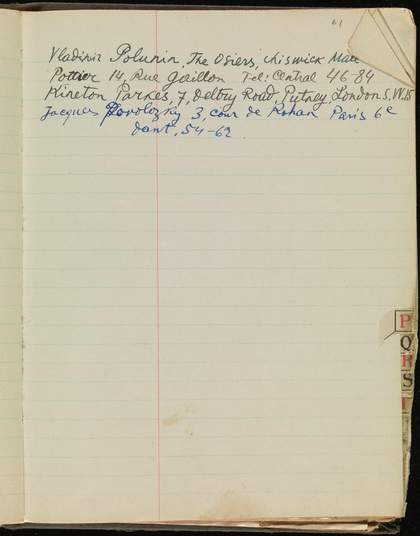 61
Vladimir Polunin, The Osiers, Chiswick Mall
Pottier 14, Rue Gaillon Tel: Central 46-84
Kineton Parkes, 7, Delbry Road, Putney, London S.W.15
Jacques Povolozky 3, cour de Rohan Paris 6e
Dant. 54-62
P
Q
R
S
T